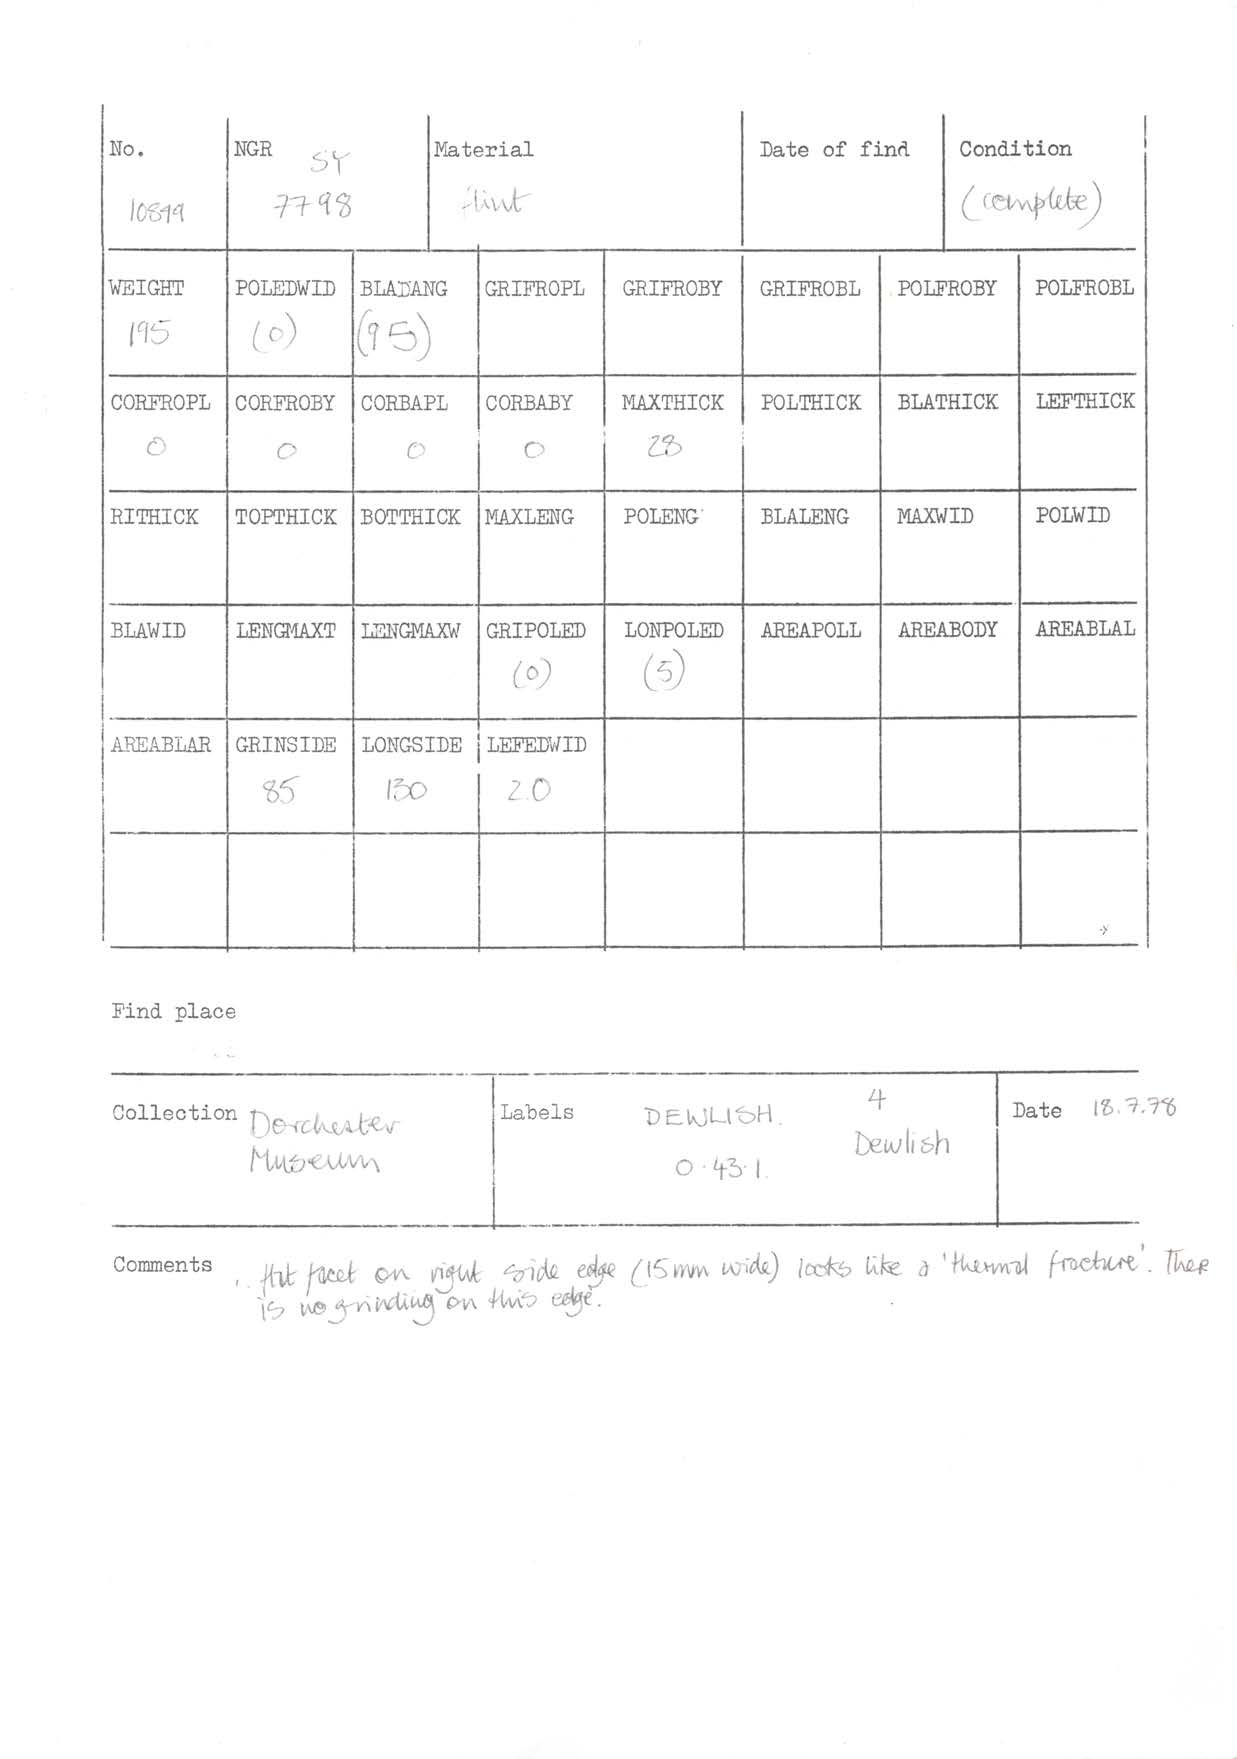 No. NGR SY Material Date of find Condition
10899 7798 flint (complete)
WEIGHT POLEDWID BLADANG GRIFROPL GRIFROBY GRIFROBL POLFROBY POLFROBL
195 (0) (95)
CORFROPL CORFROBY CORBAPL CORBABY MAXTHICK POLTHICK BLATHICK LEFTHICK
0 0 0 0 28
RITHICK TOPTHICK BOTTHICK MAXLENG POLENG BLALENG MAXWID POLWID
BLAWID LENGMAXT LENGMAXW GRIPOLED LONPOLED AREAPOLL AREABODY AREABLAL
(0) (5)
AREABLAR GRINSIDE LONGSIDE LEFEDWID
85 130 2.0
Find place
Collection Dorchester Museum
Labels DEWLISH. 4
0.43.1. Dewlish
Date 18.7.78
Comments Flat facet on right side edge (15mm wide) looks like a 'thermal fracture'. There
is no grinding on this edge.